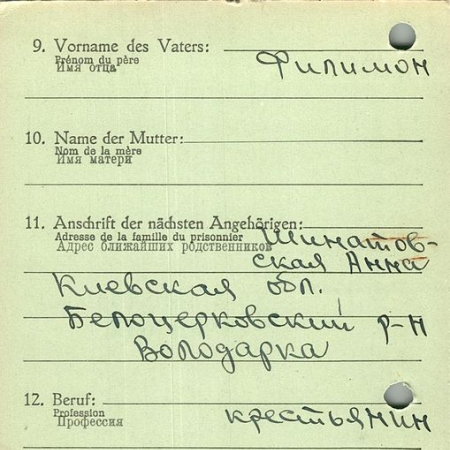 9. Vorname des Vaters:
Prénom du père
Имя отца
Филимон
10. Name der Mutter:
Nom de la mère
Имя матери
11. Anschrift der nächsten Angehörigen:
Adresse de la famille du prisonnier
Адрес ближайших родственников
Шинатов-
ская Анна
Киевская обл.
Белоцерковский р-н
Володарка
12. Beruf:
Profession
Профессия
крестьянин